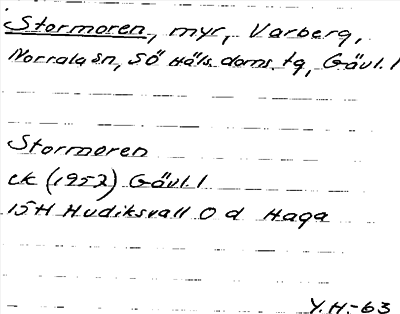 Stormoren, myr, Varberg,
Norrala sn, SÖ Häls. doms. tg, Gävl. l
Stormoren
ek (1952) Gävl. l
15H Hudiksvall O d Haga
Y.H.-63